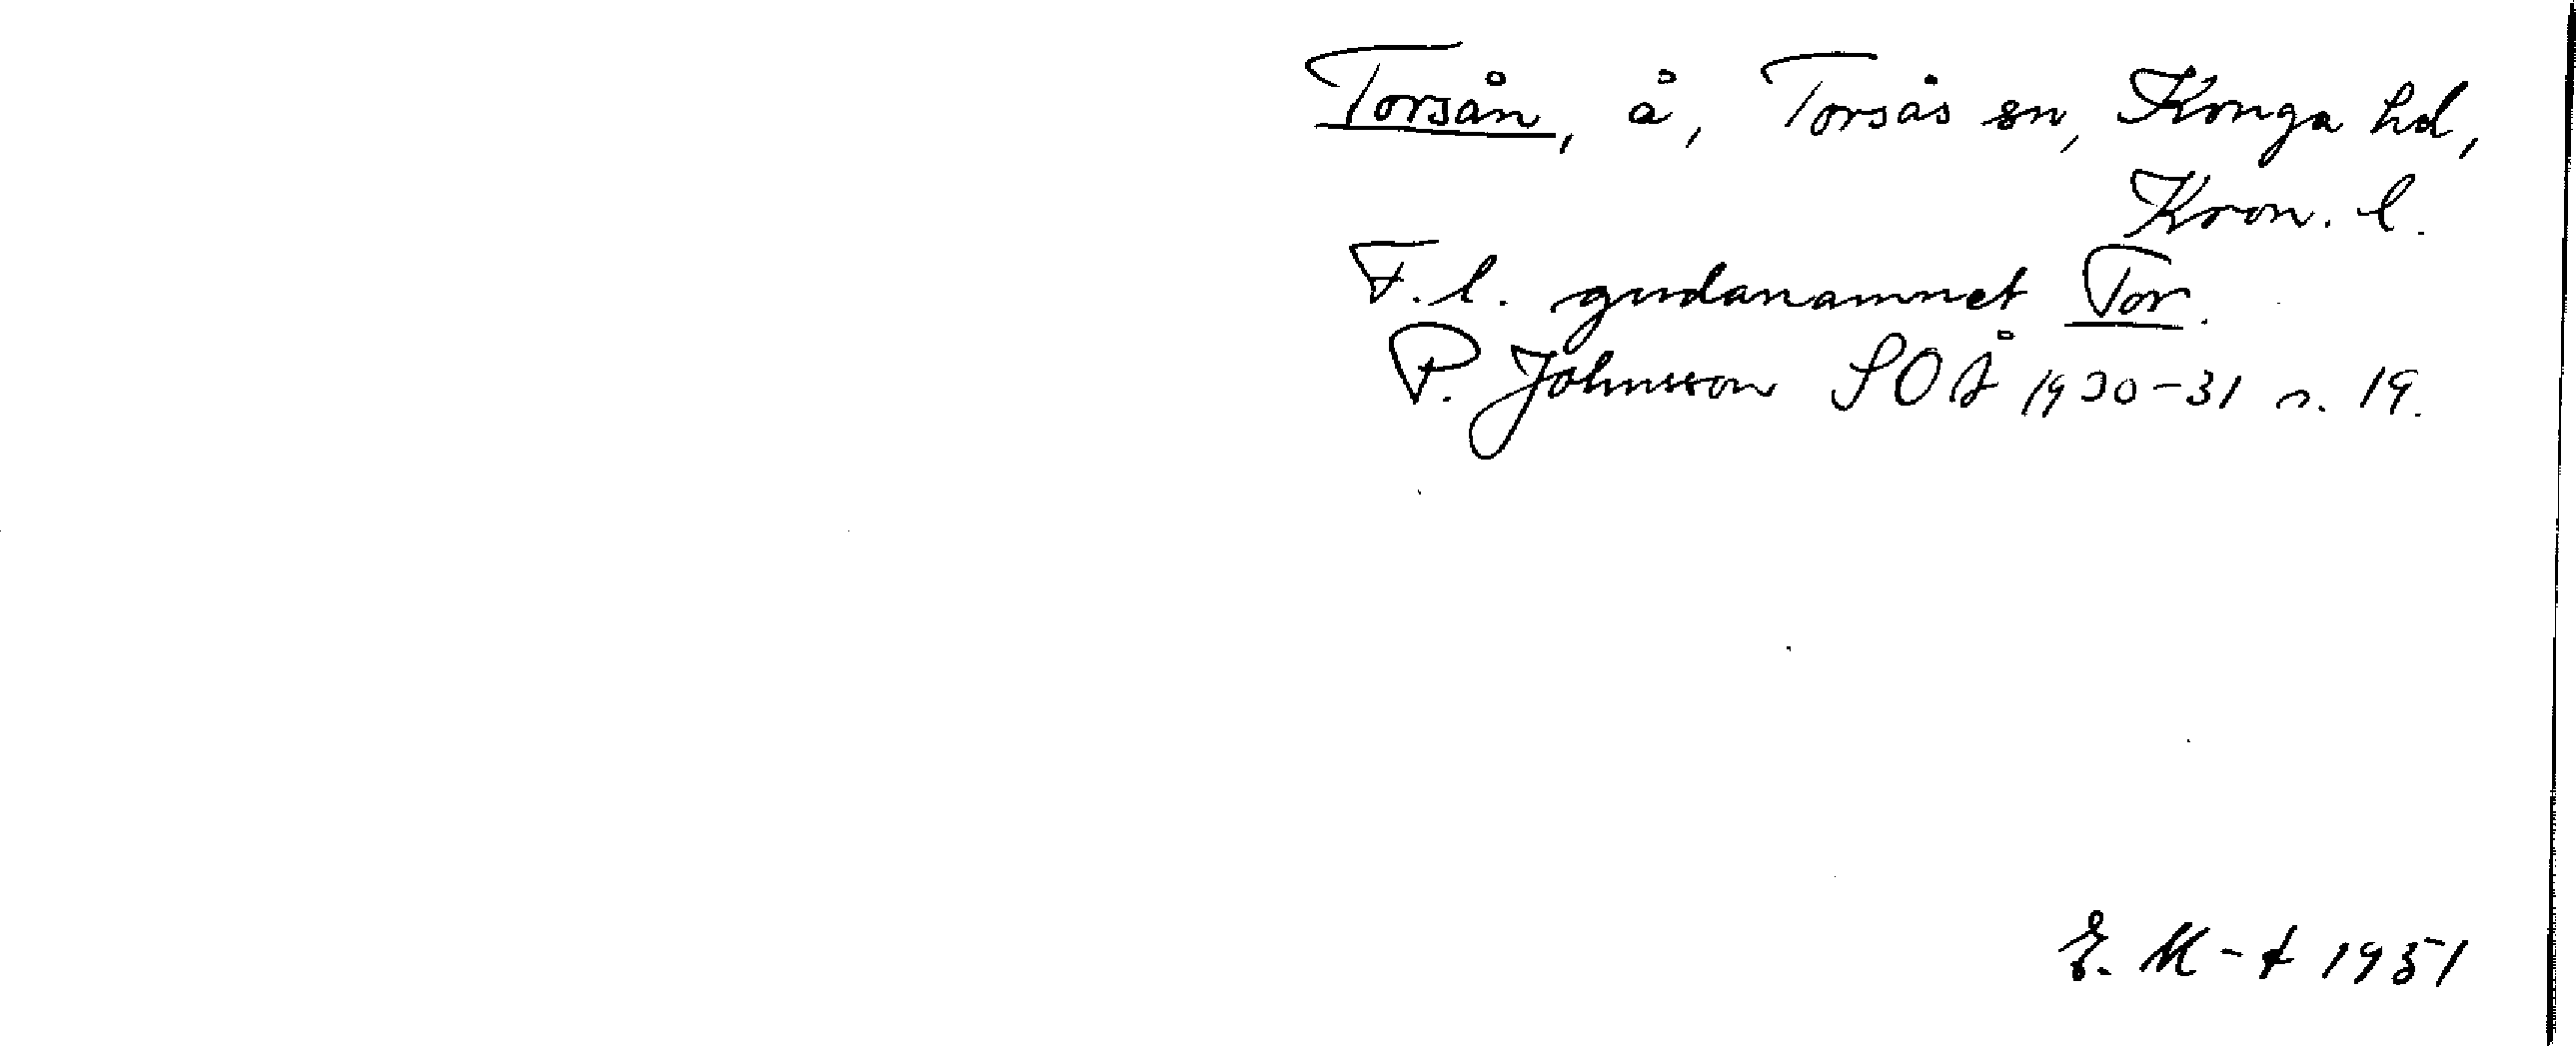 Torsån, å, Torsås sn, Konga hd,
Kron. l.
F. l. gudanamnet Tor.
P. Johnsson SOÅ 1930-31 s. 19.
E. M-t 1951